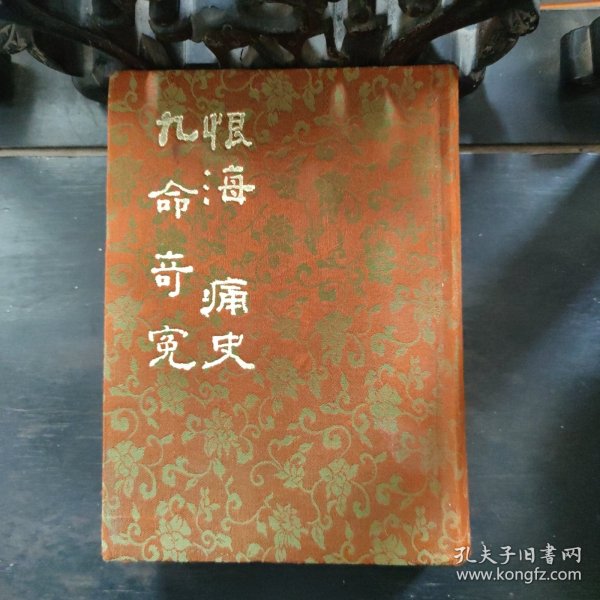 恨海 痛史
九命奇冤
孔夫子旧書网
www.kongfz.com